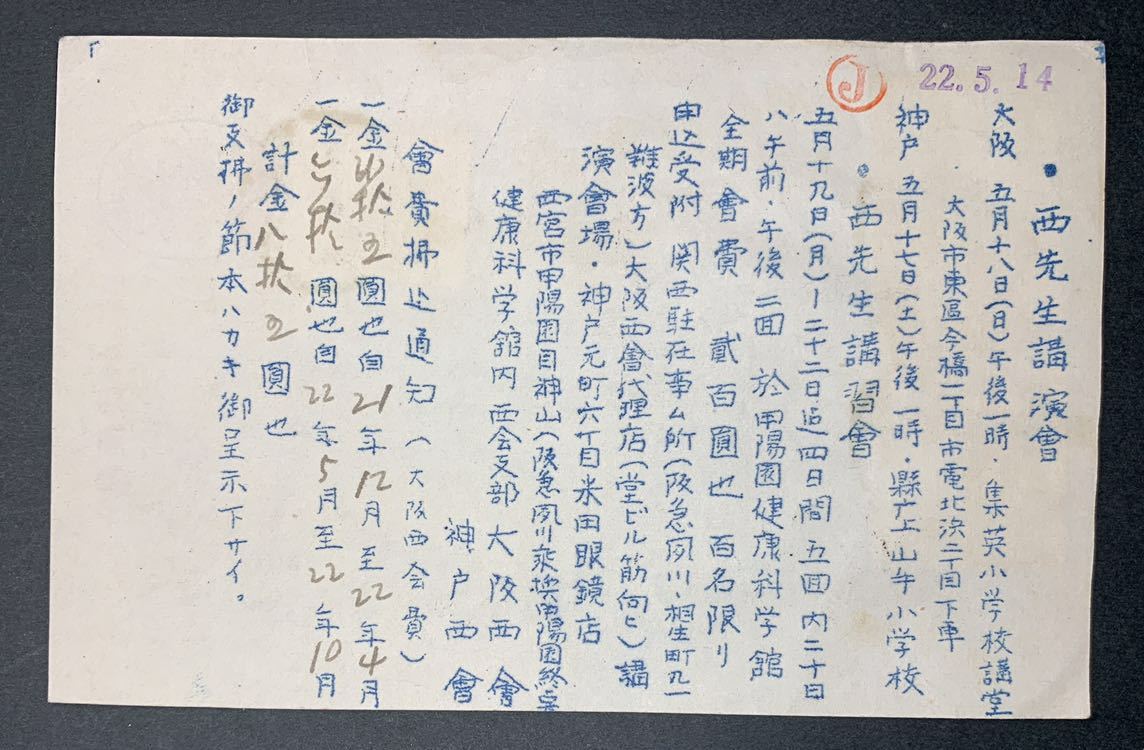 22.5.14
J
・西先生講演會
大阪 五月十八日(日)午後一時・集英小学校講堂
大阪市東區今橋一丁目市電北浜二丁目下車
神戸 五月十七日(土)午後一時・縣庁上山手小学校
・西先生講習會
五月十九日(月)ー二十二日迠四日間 五回内二十日
ハ午前・午後二回 於甲陽園健康科学館
全期會費 貳百圓也 百名限リ
申込受附 関西駐在事ム所(阪急夙川・相生町九一
難波方)大阪西會代理店(堂ビル筋向ヒ)講
演會場・神戸元町六丁目米田眼鏡店
西宮市甲陽園目神山(阪急夙川乗換甲陽園終点
健康科学館内 西会支部 大阪西會
神戸西會
會費拂込通知(大阪西会費)
一金 拾五圓也自21年12月至22年4月
一金 拾圓也自22年5月至22年10月
計金八拾五圓也
御支拂ノ節本ハカキ御呈示下サイ。